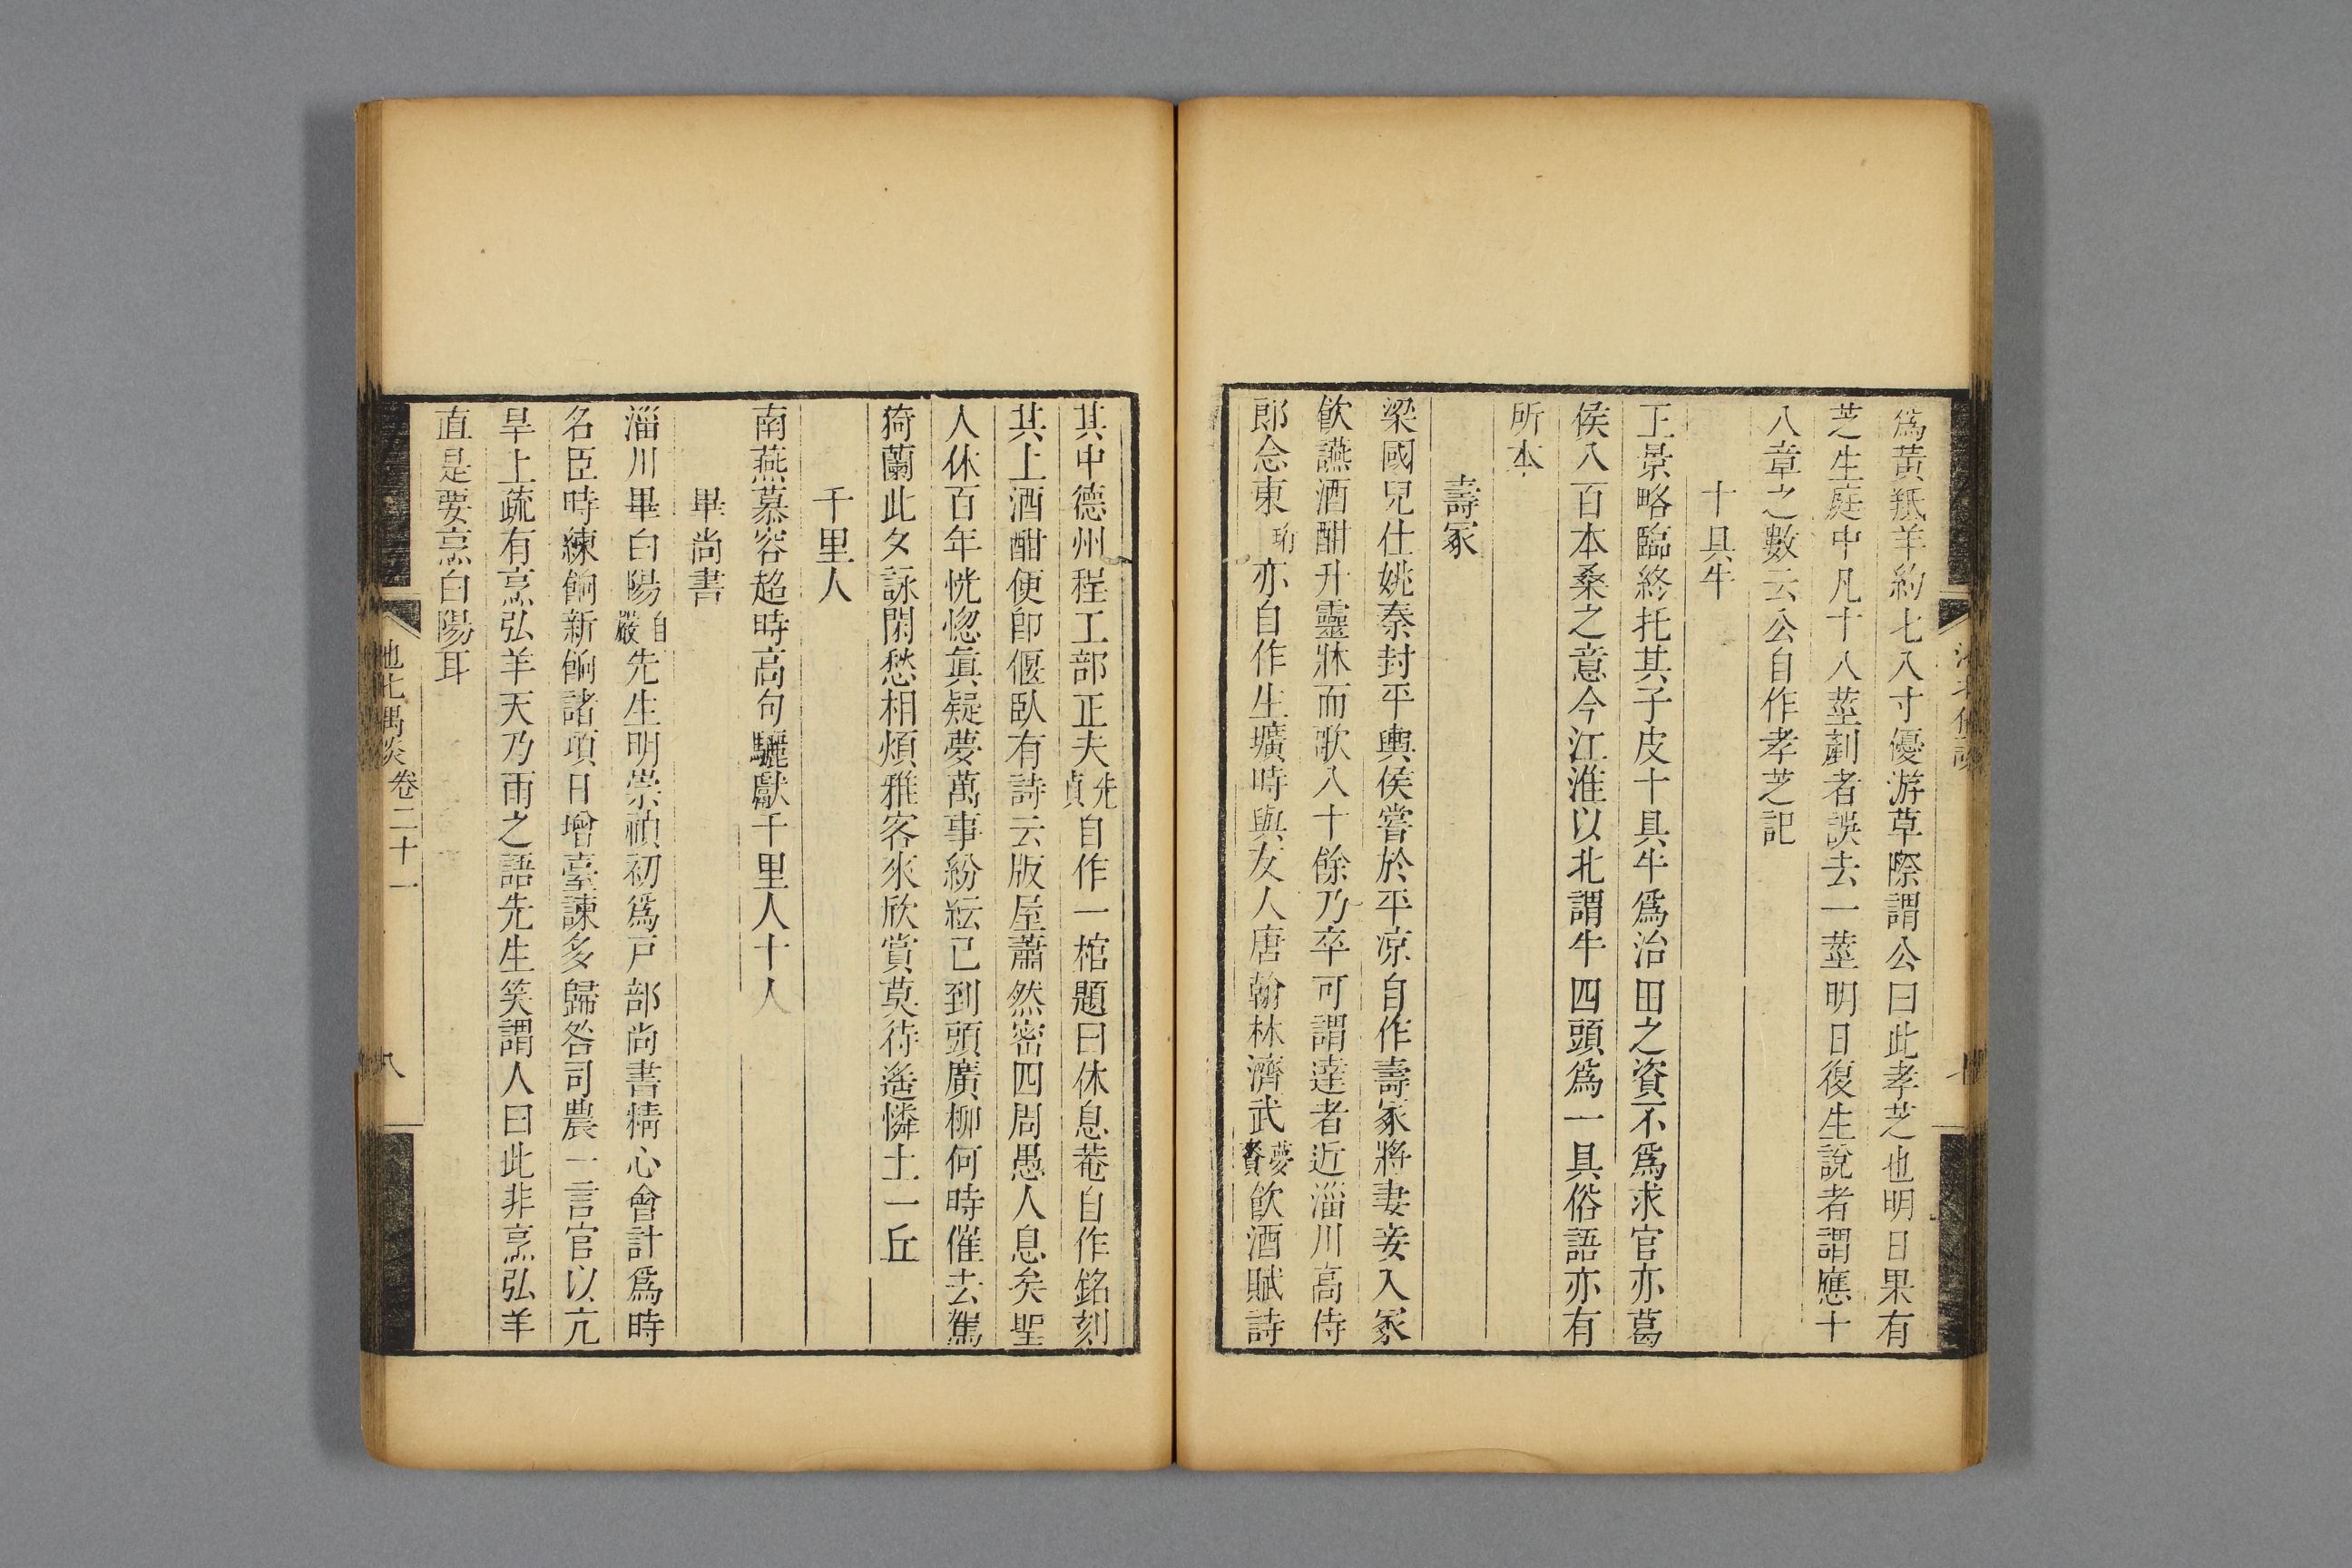 爲黃羝羊約七八寸優游草際謂公曰此孝芝也明日果有
芝生庭中凡十八莖劚者誤去一莖明日復生說者謂應十
八章之數云公自作孝芝記
十具牛
王景略臨終托其子皮十具牛爲治田之資不爲求官亦葛
侯八百本桑之意今江淮以北謂牛四頭爲一具俗語亦有
所本
壽冢
梁國兒仕姚秦封平輿侯嘗於平凉自作壽冢將妻妾入冢
飮讌酒酣升靈牀而歌八十餘乃卒可謂達者近淄川高侍
郎念東珩亦自作生壙時與友人唐翰林濟武夢賚飮酒賦詩
其中德州程工部正夫先貞自作一棺題曰休息菴自作銘刻
其上酒酣便卽偃臥有詩云版屋蕭然密四周愚人息矣聖
人休百年恍惚眞疑夢萬事紛紜已到頭廣柳何時催去駕
猗蘭此夕詠閑愁相煩雅客來欣賞莫待遙憐土一丘
千里人
南燕慕容超時高句驪獻千里人十人
畢尚書
淄川畢白陽自嚴先生明崇禎初爲戶部尚書精心會計爲時
名臣時練餉新餉諸項日增臺諫多歸咎司農一言官以亢
旱上疏有烹弘羊天乃雨之語先生笑謂人曰此非烹弘羊
直是要烹白陽耳
池北偶談 卷二十一
八